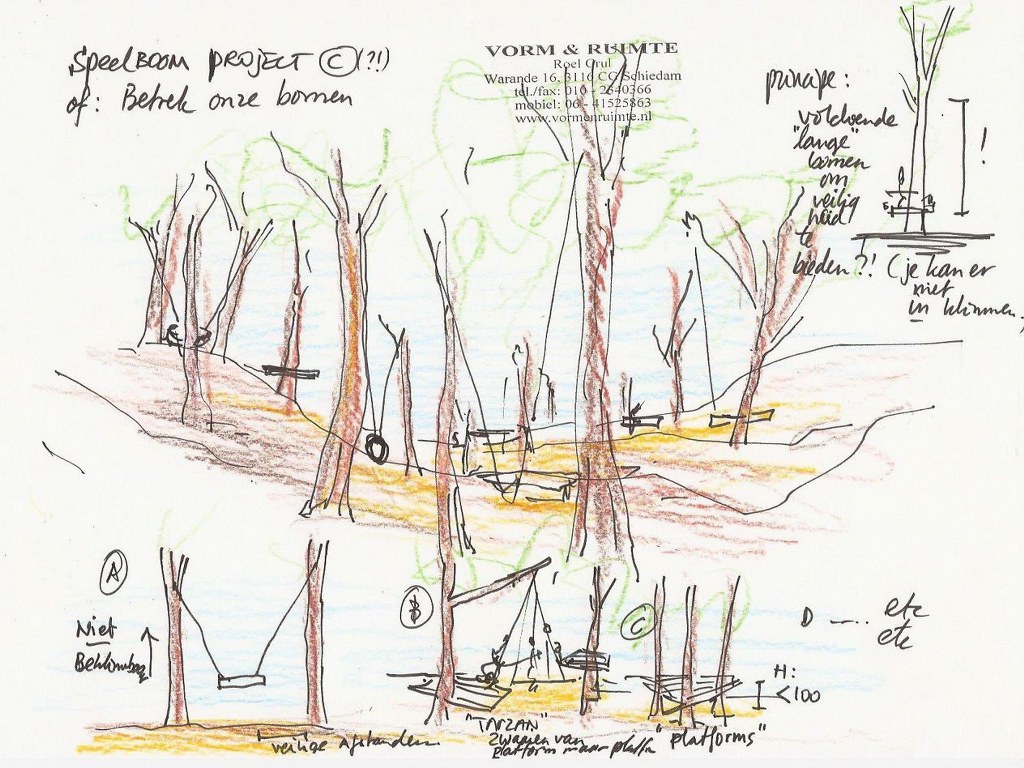 SpeelBOOM PROJECT © (?!)
of: Betrek onze bomen
VORM & RUIMTE
Roel Crul
Warande 16, 3116 CC Schiedam
tel./fax: 010 - 2340366
mobiel: 06 - 41525863
www.vormenruimte.nl
principe:
voldoende
"lange"
bomen
om
veilig
heid
te
bieden?! (je kan er
niet
in klimmen.
!
A
Niet
Beklimbaar
veilige afstanden
B
"TARZAN"
zwaaien van
platform naar platfo
C
"platforms"
H:
<100
D ---.. etc
etc